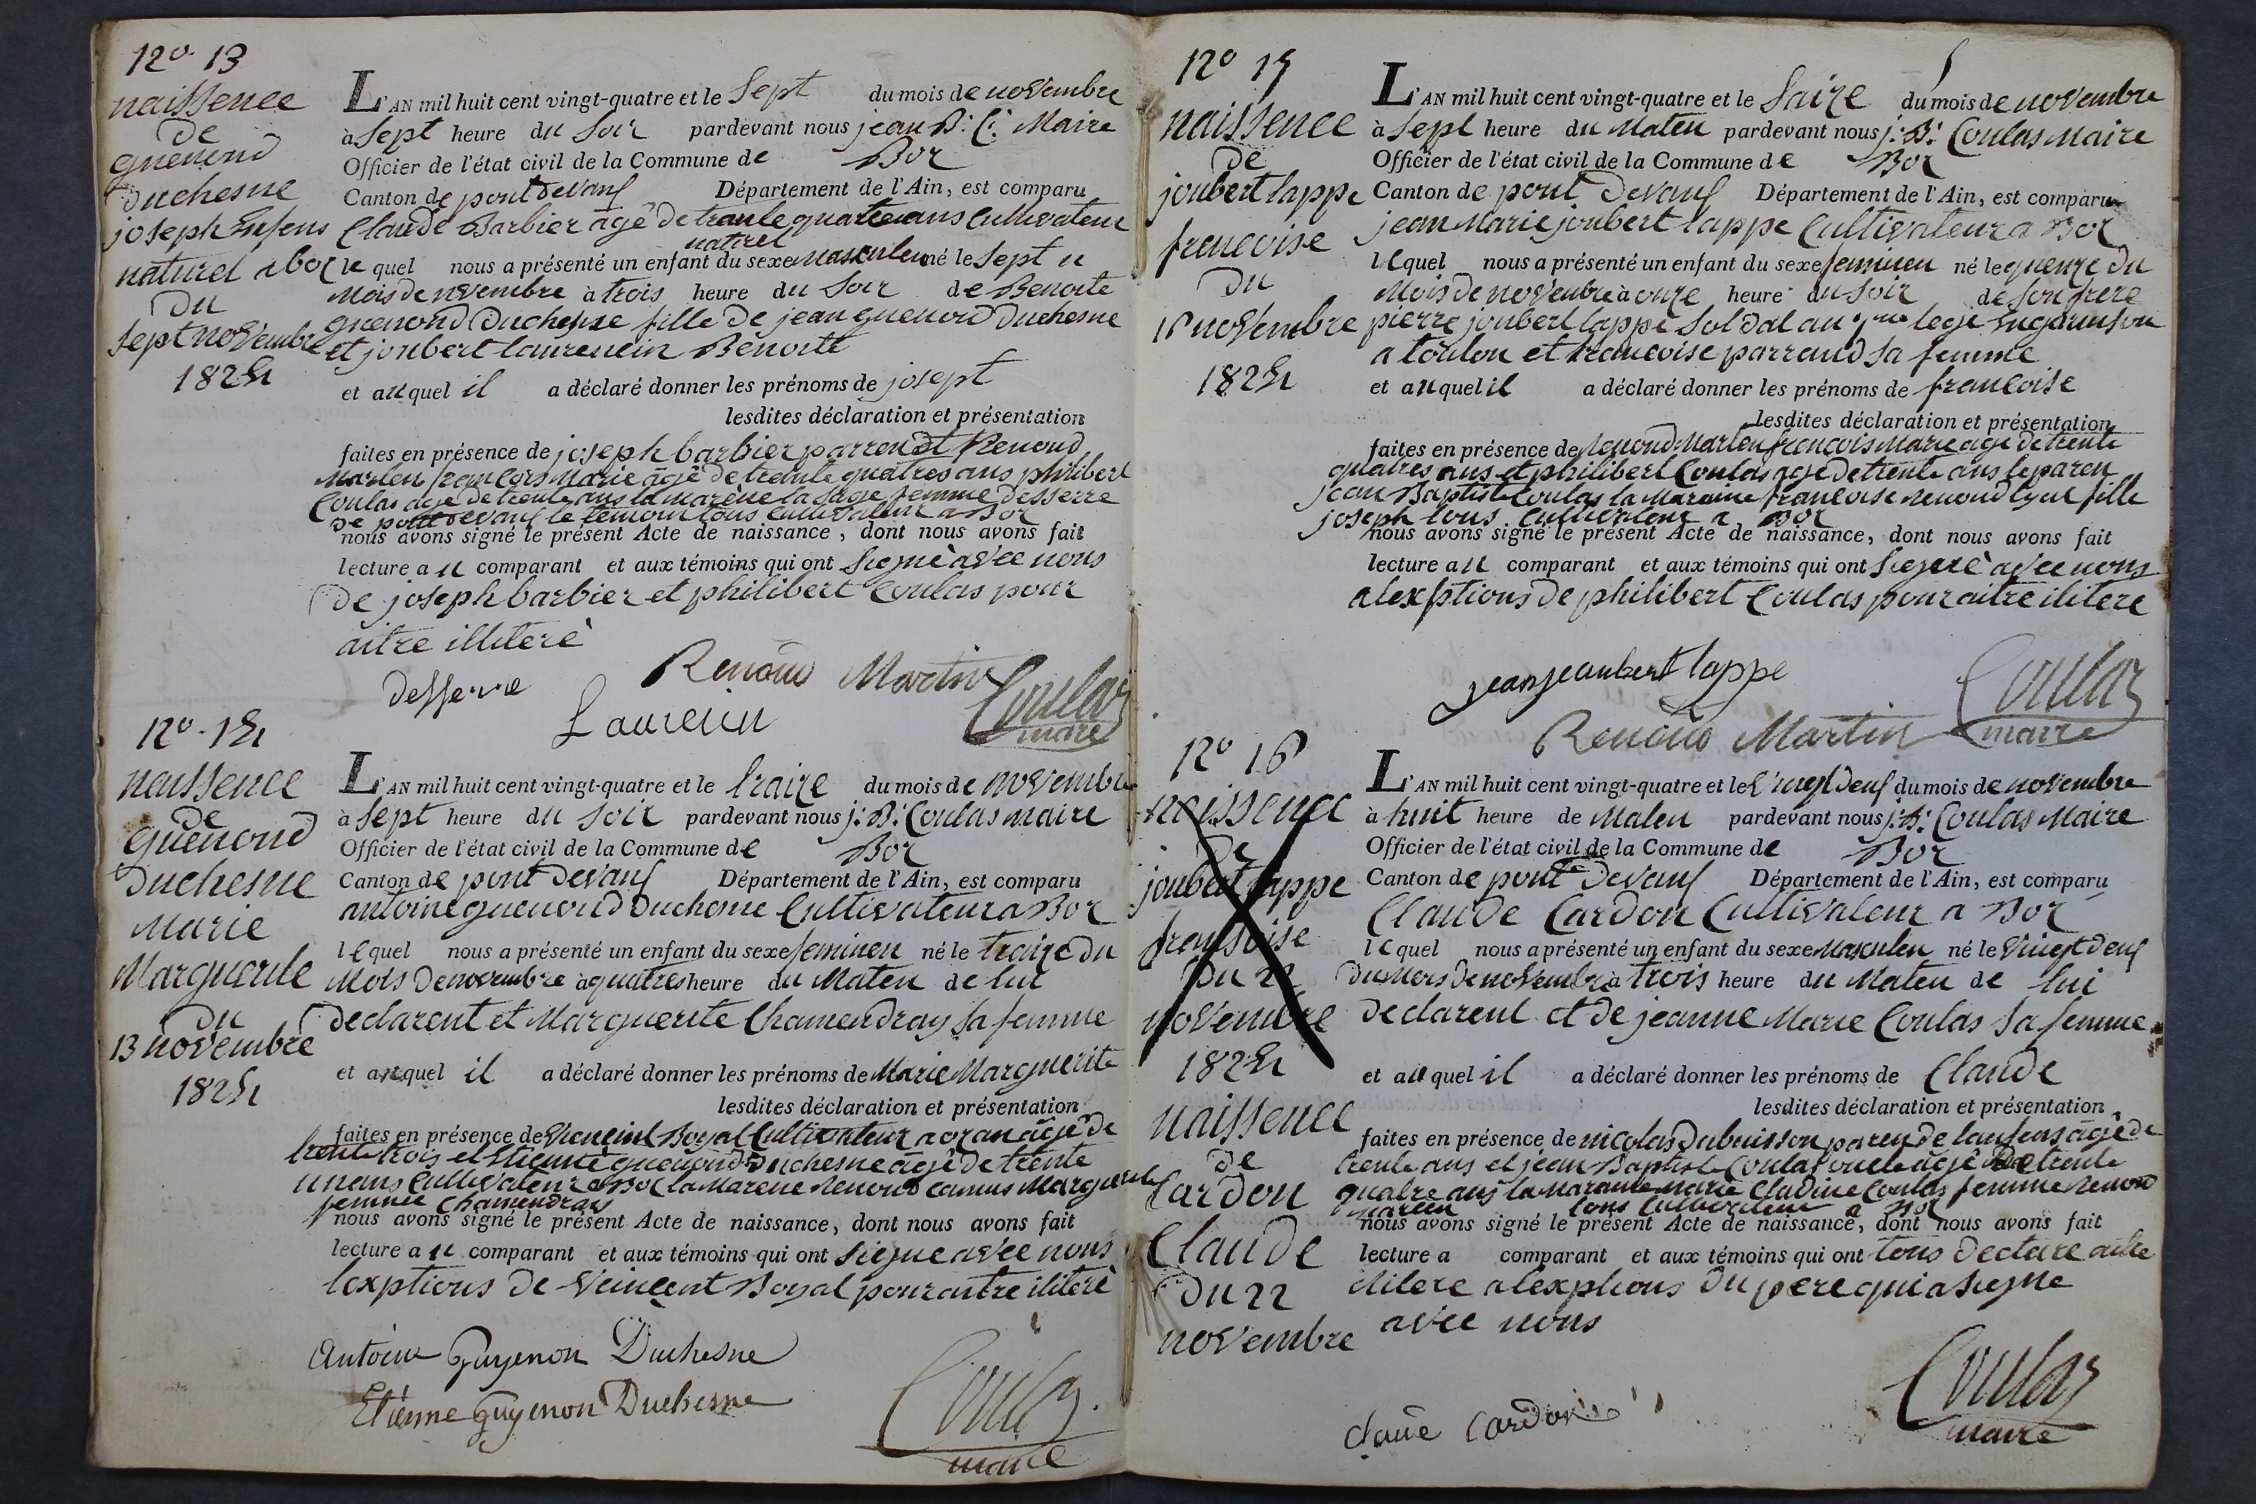 N.º 13
naissence
de
guenond
duchesne
joseph Enfens
naturel a bor
du
sept novembre
1824
L'AN mil huit cent vingt-quatre et le Sept du mois de novembre
à Sept heure du Soir pardevant nous jean B. C. Maire
Officier de l'état civil de la Commune de Bor
Canton de pont devaus Département de l'Ain, est comparu
Claude Barbier âgê de trante quatre ans Cultivateur
naturel
le quel nous a présenté un enfant du sexe Masculen né le Sept u
Mois de novembre à trois heure du Soir de Benoite
guenond Duchesne fille de jean guenond Duchesne
et joubert laurencin Benoite
et au quel il a déclaré donner les prénoms de josept
lesdites déclaration et présentation
faites en présence de joseph barbier parren et Renoud
Marten francois Marie âgê de trente quatres ans philibert
Coulas âgé de trente ans la marène la Sage femme desserre
de pont devaus le temoin tous Cultivateur a Bor
nous avons signé le présent Acte de naissance, dont nous avons fait
lecture a u comparant et aux témoins qui ont Signè avec nous
De joseph barbier et philibert Coulas pour
aitre illiterè
desserve
Renoud Martin
Laurencin
Coulas
maire
N.º 14
naissence
de
guenond
duchesne
Marie
Marguerite
du
13 novembre
1824
L'AN mil huit cent vingt-quatre et le traize du mois de novembre
à Sept heure du Soir pardevant nous j. B. Coulas maire
Officier de l'état civil de la Commune de Bor
Canton de pont devaus Département de l'Ain, est comparu
antoine guenond Duchesne Cultivateur a Bor
le quel nous a présenté un enfant du sexe feminen né le traize du
Mois de novembre à quatres heure du Maten de lui
declarent et Marguerite Chamendray sa femme
et au quel il a déclaré donner les prénoms de Marie Marguerite
lesdites déclaration et présentation
faites en présence de Boyal Cultivateur a ozan âgê de
trente trois et Etienne guenond Duchesne âgê de trente
un ans Cultivateur a Bor la Marene renoud Camus Marguerite
femme Chamendray
nous avons signé le présent Acte de naissance, dont nous avons fait
lecture a u comparant et aux témoins qui ont Signe avec nous
lexptions de Veincent Boyal pour aitre iliterè
Antoine Guyenon Duchesne
Etienne Guyenon Duchesne
Coulas
maire
N.º 15
naissence
de
joubert lappe
francoise
du
16 novembre
1824
L'AN mil huit cent vingt-quatre et le Saize du mois de novembre
à Sept heure du Maten pardevant nous j. B. Coulas Maire
Officier de l'état civil de la Commune de Bor
Canton de pont Devaus Département de l'Ain, est comparu
jean Marie joubert lappe Cultivateur a Bor
le quel nous a présenté un enfant du sexe feminen né le quenze du
Mois de novembre à onze heure du Soir de Son frere
pierre joubert lappe Soldat au lege En garnison
a toulon et francoise parraud sa femme
et au quel il a déclaré donner les prénoms de francoise
lesdites déclaration et présentation
faites en présence de renond Marten francois Marie age de trente
quatres ans et philibert Coulas age de trente ans le paren
jean Baptiste Coulas la Maraine francoise renoud fille
joseph tous Cultivateur a Bor
nous avons signé le présent Acte de naissance, dont nous avons fait
lecture a u comparant et aux témoins qui ont Signè avec nous
a lexptions de philibert Coulas pour aitre ilitere
jean jeaubert lappe
Coulas
maire
Renoud Martin
N.º 16
naissence
de
joubert lappe
fransoise
Du 22
novembre
1824
naissence
de
Cardon
Claude
Du 22
novembre
L'AN mil huit cent vingt-quatre et le Vingt deus du mois de novembre
à huit heure de Maten pardevant nous j. B. Coulas Maire
Officier de l'état civil de la Commune de Bor
Canton de pont Devaus Département de l'Ain, est comparu
Claude Cardon Cultivateur a Bor
le quel nous a présenté un enfant du sexe Masculen né le Vingt deus
du Mois de novembre à trois heure du Maten de lui
declarent et de jeanne Marie Coulas Sa femme
et au quel il a déclaré donner les prénoms de Claude
lesdites déclaration et présentation
faites en présence de nicolas Dubuisson paren de lenfens âgê de
trente ans et jean Baptiste Coulas oncle âgé De trente
quatre ans la Maraine Marie Cladine Coulas femme renoud
Marten tous Cultivateur a Bor
nous avons signé le présent Acte de naissance, dont nous avons fait
lecture a comparant et aux témoins qui ont tous declare aitre
ilitere a lexptions Du pere qui a Signe
avec nous
Claude Cardon
Coulas
maire